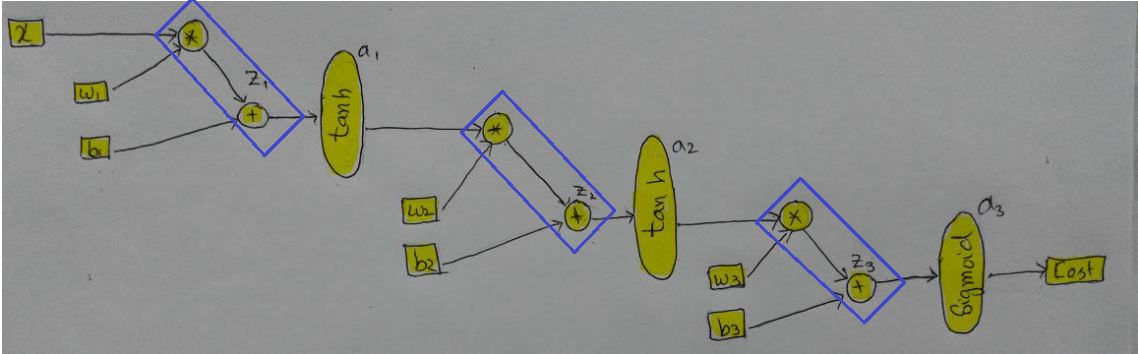 x
*
w1
z1
+
b1
a1
tanh
*
w2
z2
+
b2
a2
tanh
*
w3
z3
+
b3
a3
Sigmoid
Cost